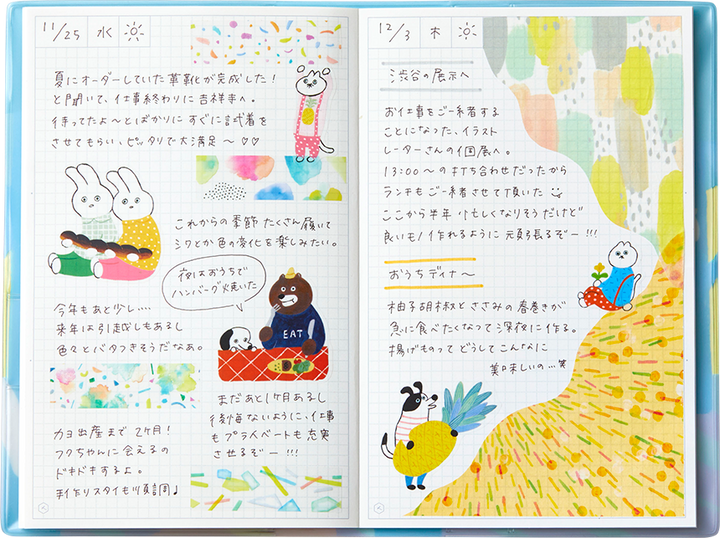 11/25 水
夏にオーダーしていた革靴が完成した!
と聞いて、仕事終わりに吉祥寺へ。
待ってたよ〜とばかりに すぐに試着を
させてもらい、ピッタリで大満足〜♡♡
これからの季節 たくさん履いて
シワとか色の変化を楽しみたい。
夜はおうちで
ハンバーグ焼いた
EAT
今年もあと少し....
来年は引越しもあるし
色々とバタつきそうだなあ。
まだあと1ヶ月あるし
後悔ないように、仕事
もプライベートも充実
させるぞー!!!
カヨ出産まで2ヶ月!
フクちゃんに会えるの
ドキドキするよ。
手作りスタイも順調♪
12/3 木
渋谷の展示へ
お仕事をご一緒する
ことになった、イラスト
レーターさんの個展へ。
13:00〜の打ち合わせだったから
ランチもご一緒させて頂いた
ここから半年 忙しくなりそうだけど
良いもの作れるように 頑張るぞー!!!
おうちディナ〜
柚子胡椒とささみの春巻きが
急に食べたくなって深夜に作る。
揚げものってどうしてこんなに
美味しいの...笑